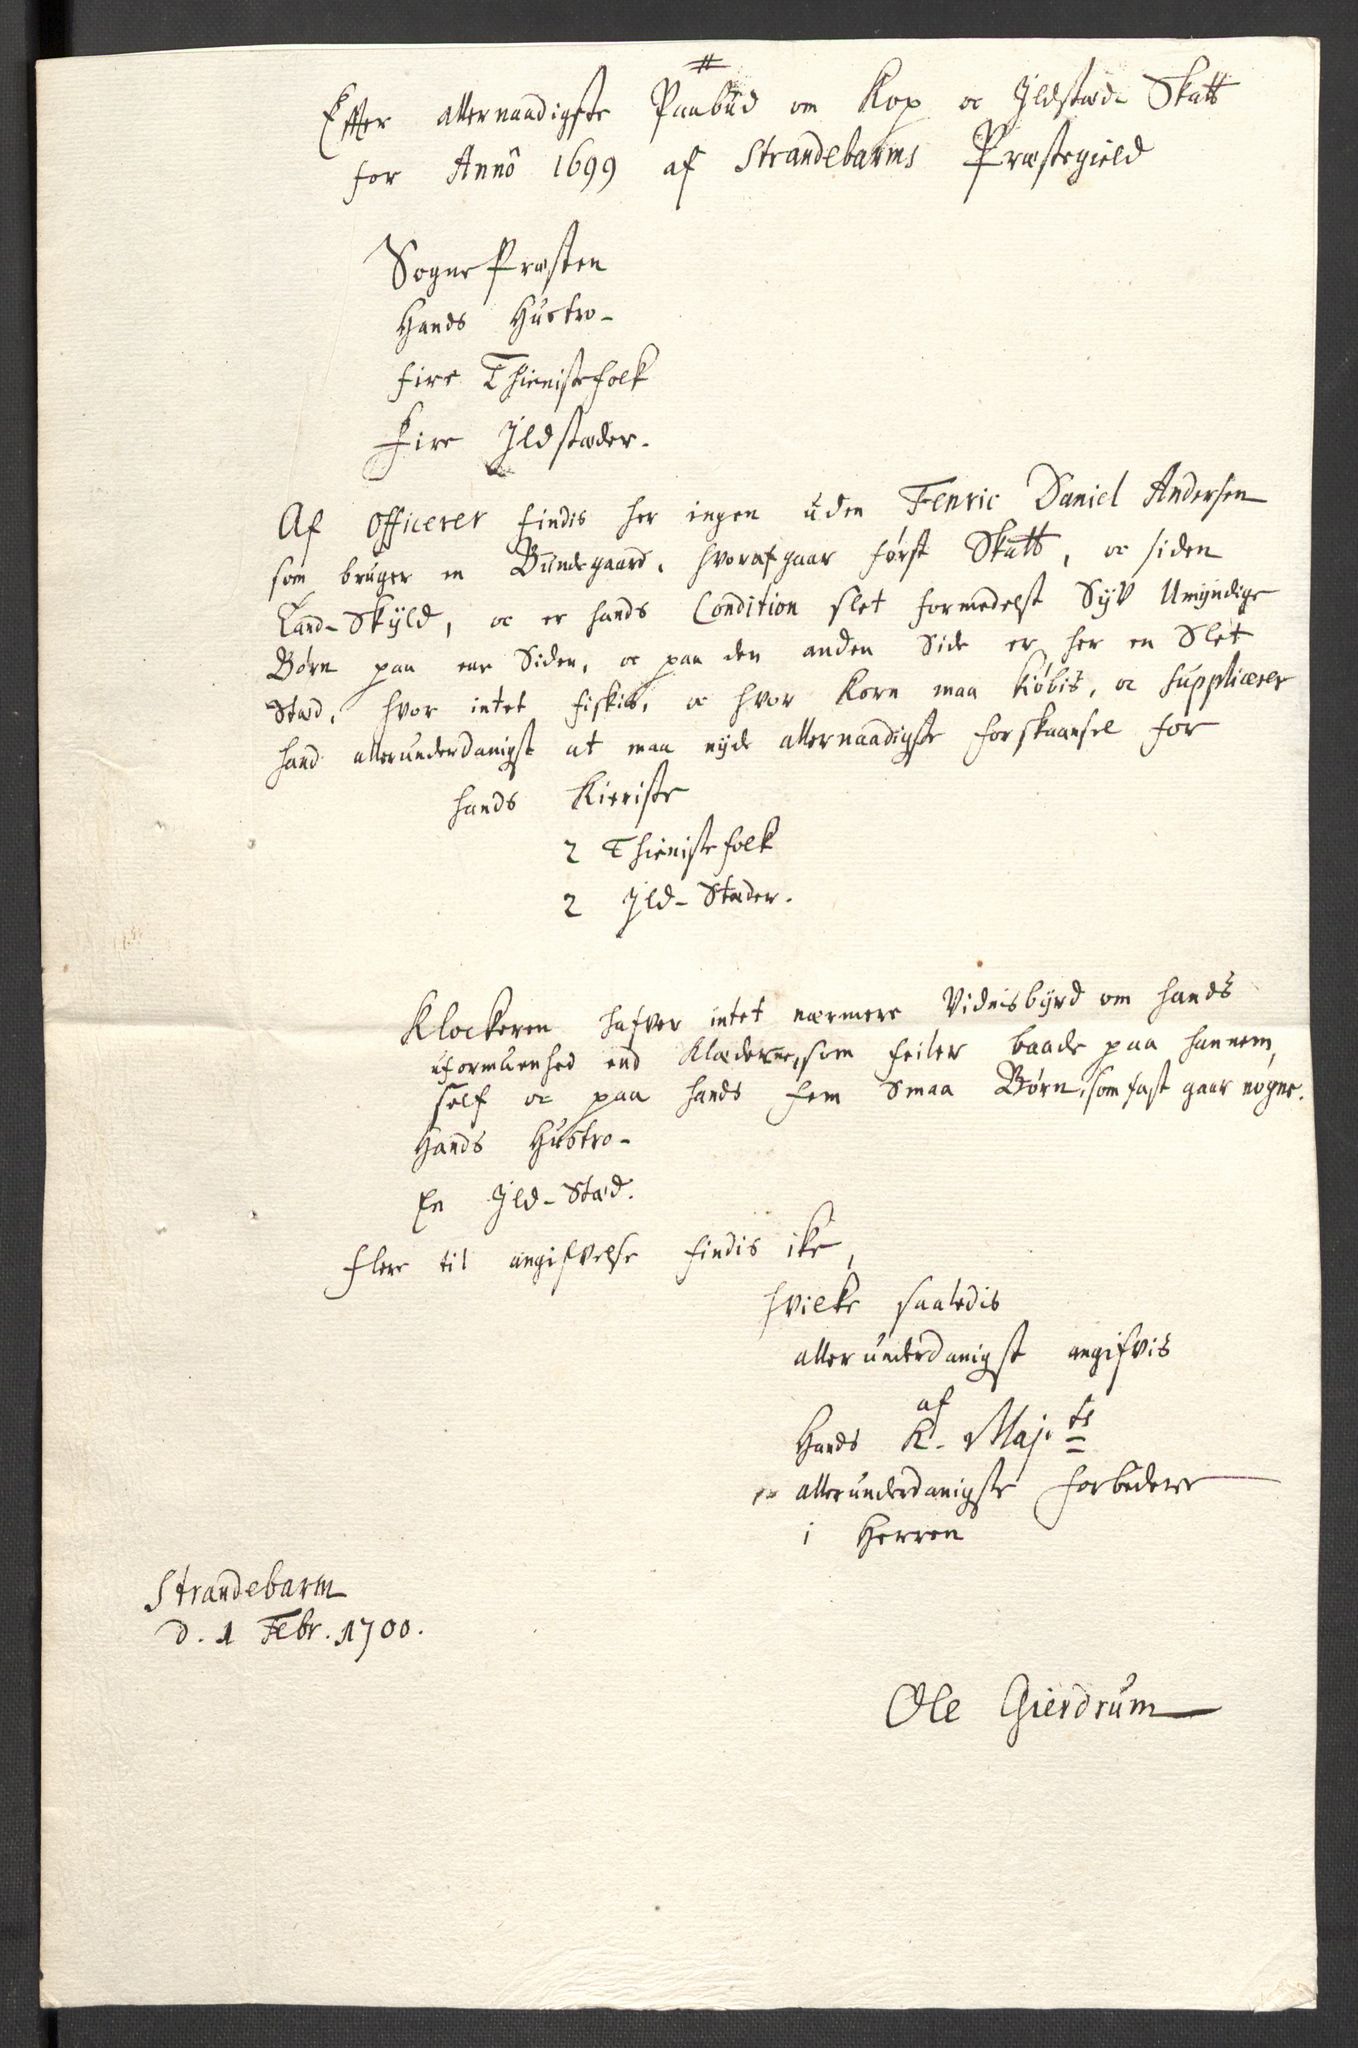 Effter allernaadigste Paabud om Kop oc Ildstæd- Skatt
for Annô 1699 af Strandebarms Præstegield
Sogne Præsten
Hands Hustro-
fire Thienistefolk
Fire Ildstæder.
Af Officerer findis her ingen uden Fenric Daniel Andersen
som bruger en Bundegaard, hvoraf gaar først Skatt, oc siden
Land-Skyld, oc er hands Condition slet formedelst Syv Umyndige
Børn paa ene Siden, oc paa den anden Side er her en Slet
Stæd, hvor intet fiskis, oc hvor Korn maa kiøbis, oc supplicerer
hand allerunderdanigst at maa nyde allernaadigste forskaansel for
hands Kieriste
2 Thienistefolk
2 Ild-Stæder.
Klockeren hafver intet nærmere Vidnisbyrd om hands
uformuenhed end Klæderne, som feiler baade paa hannem,
self oc paa hands fem Smaa Børn, som fast gaar nøgne.
Hands Hustro-
En Ild-Stæd.
Flere til angifvelse findis ike,
hvilke saaledis
allerunderdanigst angifvis
af
Hands K. Maj.ts
allerunderdanigste forbedere
i Herren
Strandebarm
d. 1 Febr. 1700.
Ole Gierdrum